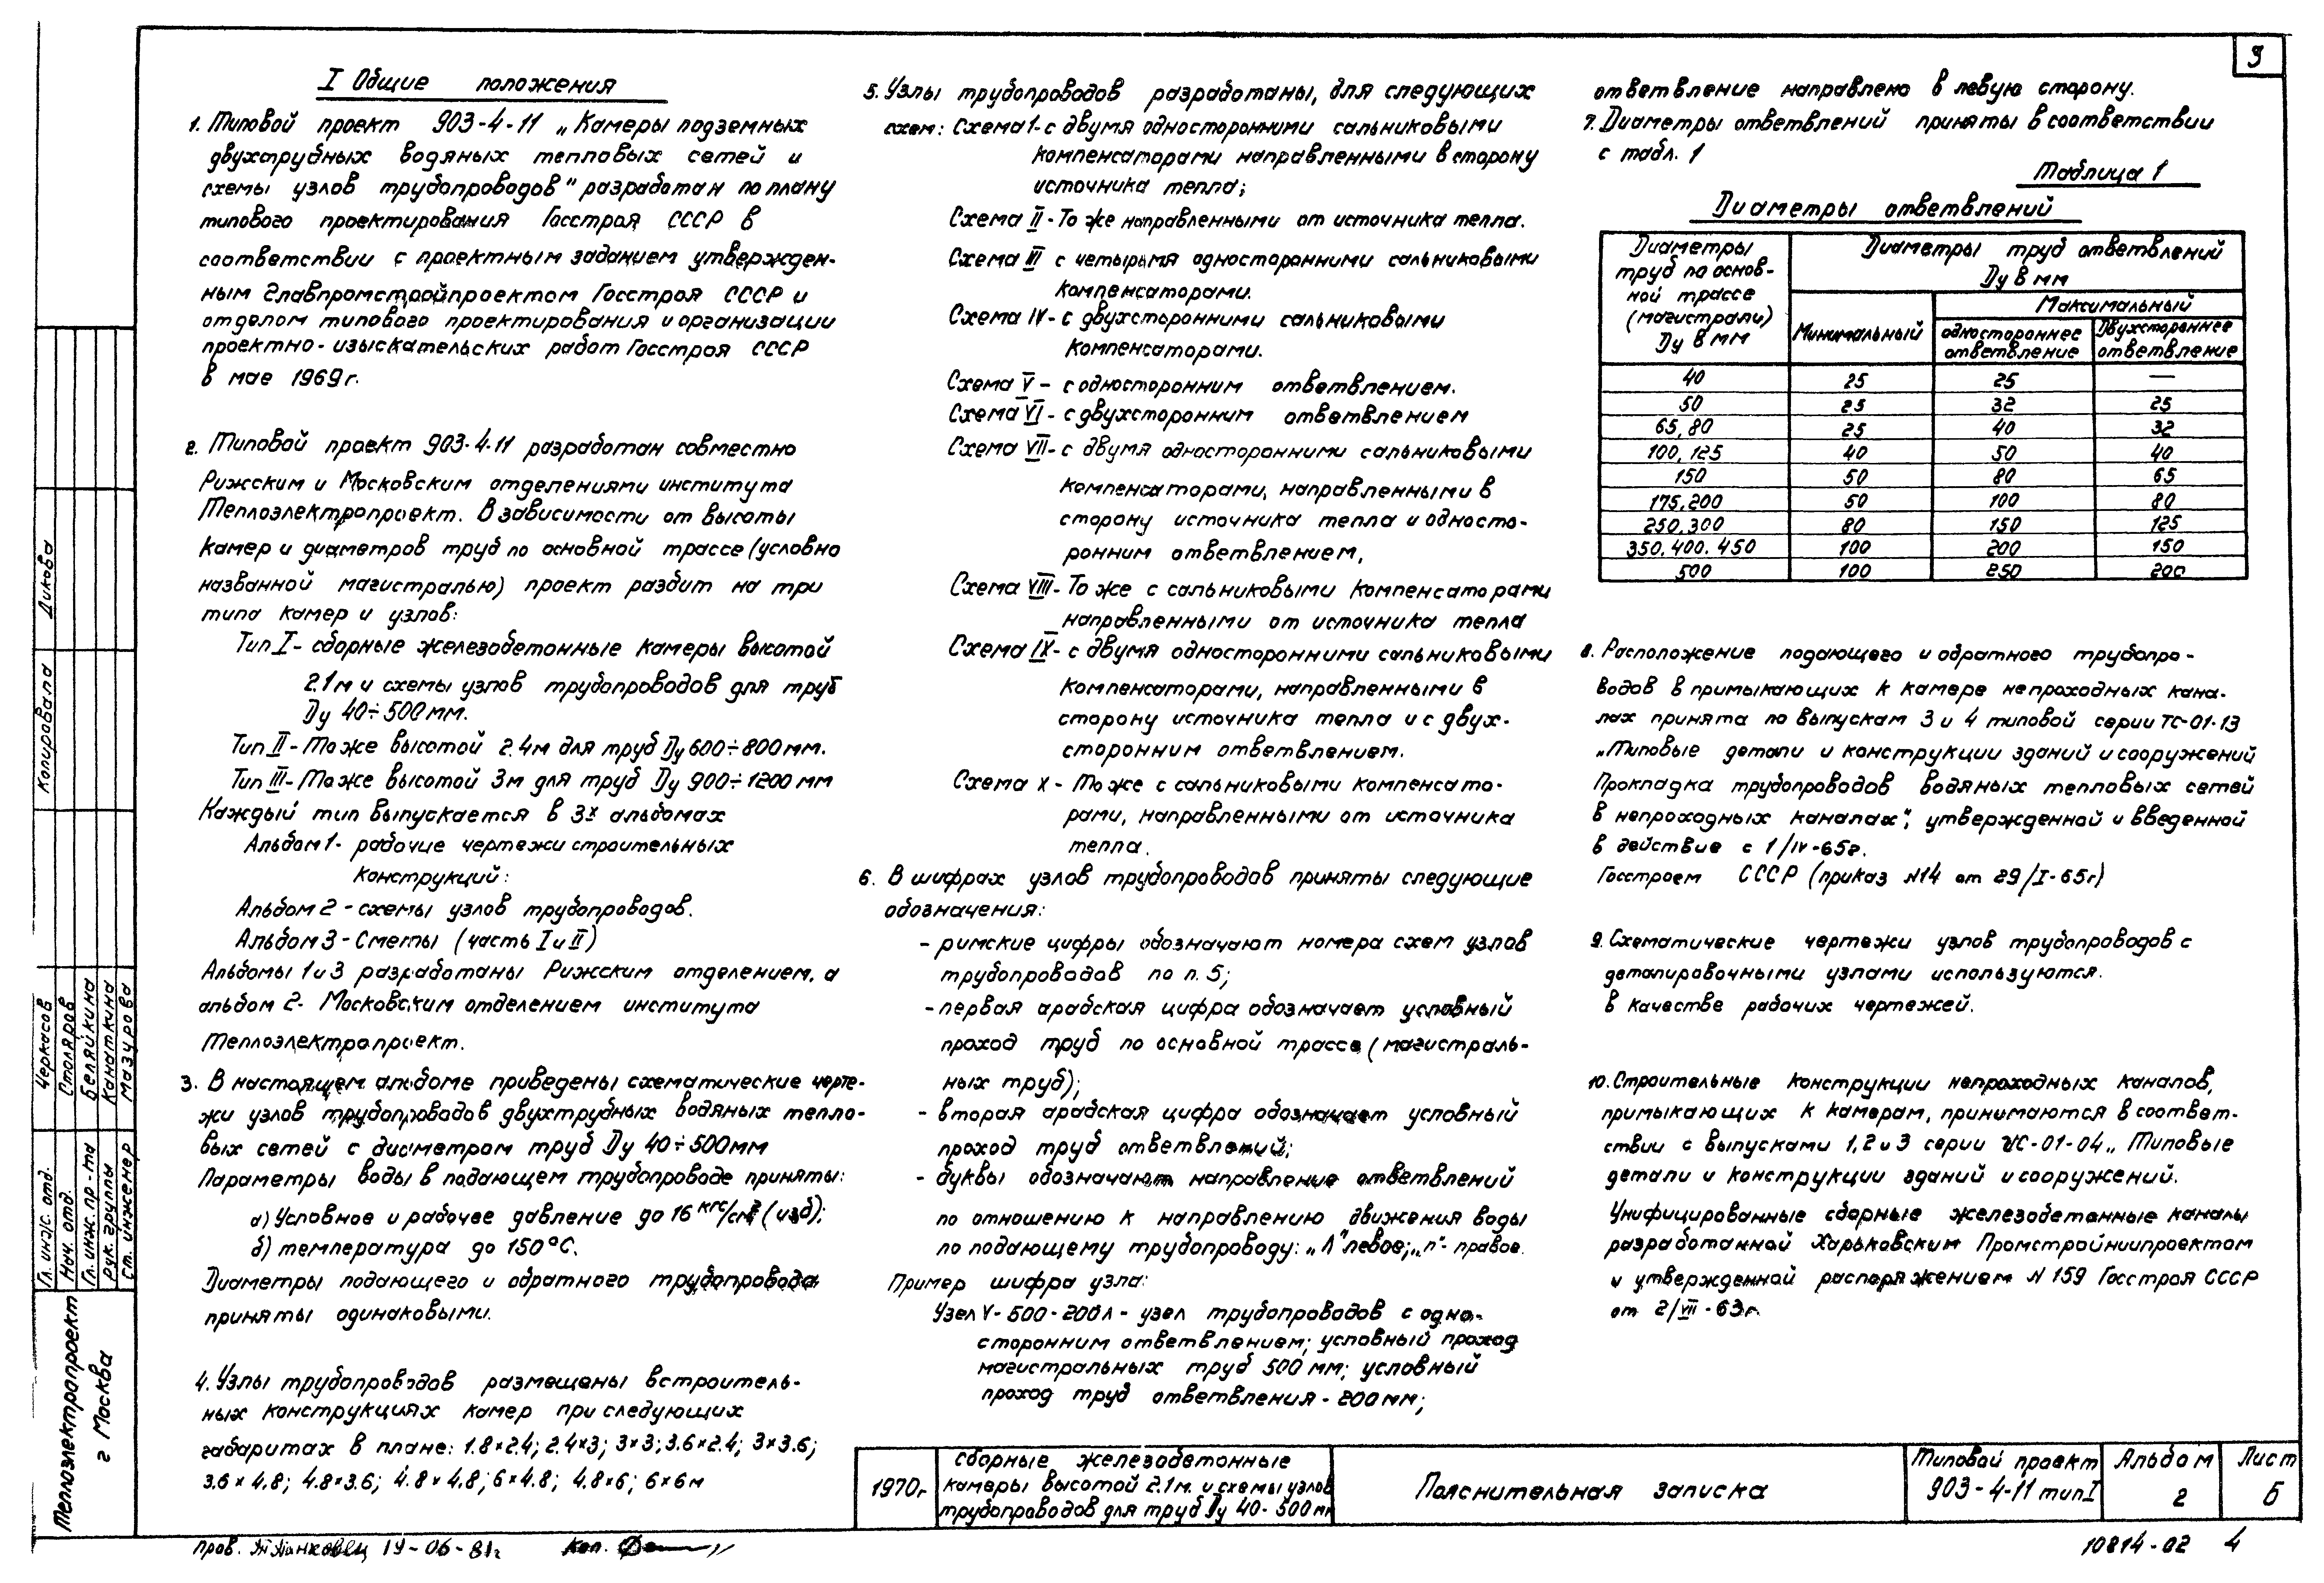 9
I Общие положения
1. Типовой проект 903-4-11 „Камеры подземных
двухтрубных водяных тепловых сетей и
схемы узлов трубопроводов" разработан по плану
типового проектирования Госстроя СССР в
соответствии с проектным заданием утвержден-
ным Главпромстройпроектом Госстроя СССР и
отделом типового проектирования и организации
проектно-изыскательских работ Госстроя СССР
в мае 1969г.
2. Типовой проект 903-4-11 разработан совместно
Рижским и Московским отделениями института
Теплоэлектропроект. В зависимости от высоты
камер и диаметров труб по основной трассе (условно
названной магистралью) проект разбит на три
типа камер и узлов:
Тип I - сборные железобетонные камеры высотой
2.1м и схемы узлов трубопроводов для труб
Ду 40÷500мм.
Тип II - То же высотой 2.4м для труб Ду 600÷800мм.
Тип III - То же высотой 3м для труб Ду 900÷1200 мм
Каждый тип выпускается в 3х альбомах
Альбом 1- рабочие чертежи строительных
конструкций:
Альбом 2 - схемы узлов трубопроводов.
Альбом 3 - Сметы (часть I и II)
Альбомы 1 и 3 разработаны Рижским отделением, а
альбом 2- Московским отделением института
Теплоэлектропроект.
3. В настоящем альбоме приведены схематические черте-
жи узлов трубопроводов двухтрубных водяных тепло-
вых сетей с диаметром труб Ду 40÷500мм
Параметры воды в подающем трубопроводе приняты:
а) Условное и рабочее давление до 16 кгс/см² (изб);
б) температура до 150°С.
Диаметры подающего и обратного трубопровода
приняты одинаковыми.
4. Узлы трубопроводов размещены в строитель-
ных конструкциях камер при следующих
габаритах в плане: 1.8×2.4; 2.4×3; 3×3; 3.6×2.4; 3×3.6;
3.6×4.8; 4.8×3.6; 4.8×4.8; 6×4.8; 4.8×6; 6×6м
5. Узлы трубопроводов разработаны, для следующих
схем: Схема 1- с двумя односторонними сальниковыми
компенсаторами направленными в сторону
источника тепла;
Схема II - То же направленными от источника тепла.
Схема III с четырьмя односторонними сальниковыми
компенсаторами.
Схема IV - с двухсторонними сальниковыми
компенсаторами.
Схема V - с односторонним ответвлением.
Схема VI - с двухсторонним ответвлением
Схема VII - с двумя односторонними сальниковыми
компенсаторами, направленными в
сторону источника тепла и односто-
ронним ответвлением,
Схема VIII - То же с сальниковыми компенсаторами
направленными от источника тепла
Схема IX - с двумя односторонними сальниковыми
компенсаторами, направленными в
сторону источника тепла и с двух-
сторонним ответвлением.
Схема X - То же с сальниковыми компенсато-
рами, направленными от источника
тепла.
6. В шифрах узлов трубопроводов приняты следующие
обозначения:
- римские цифры обозначают номера схем узлов
трубопроводов по п. 5;
- первая арабская цифра обозначает условный
проход труб по основной трассе (магистраль-
ных труб);
- вторая арабская цифра обозначает условный
проход труб ответвлений;
- буквы обозначают направление ответвлений
по отношению к направлению движения воды
по подающему трубопроводу: „Л" левое; „п"- правое.
Пример шифра узла:
Узел V-500-200л - узел трубопроводов с одно-
сторонним ответвлением; условный проход
магистральных труб 500 мм; условный
проход труб ответвления - 200мм;
ответвление направлено в левую сторону.
7. Диаметры ответвлений приняты в соответствии
с табл. 1
Таблица 1
Диаметры ответвлений
Диаметры труб по основ-ной трассе (магистрали) Ду в мм | Диаметры труб ответвлений Ду в мм
Максимальный
Минимальный | одностороннее ответвление | Двухстороннее ответвление
40 25 25 —
50 25 32 25
65, 80 25 40 32
100, 125 40 50 40
150 50 80 65
175, 200 50 100 80
250, 300 80 150 125
350. 400. 450 100 200 150
500 100 250 200
8. Расположение подающего и обратного трубопро-
водов в примыкающих к камере непроходных кана-
лах принята по выпускам 3 и 4 типовой серии ТС-01-13
„Типовые детали и конструкции зданий и сооружений
Прокладка трубопроводов водяных тепловых сетей
в непроходных каналах", утвержденной и введенной
в действие с 1/IV-65г.
Госстроем СССР (приказ №14 от 29/I-65г)
9. Схематические чертежи узлов трубопроводов с
деталировочными узлами используются.
в качестве рабочих чертежей.
10. Строительные конструкции непроходных каналов,
примыкающих к камерам, принимаются в соответ-
ствии с выпусками 1, 2 и 3 серии ИС-01-04 „Типовые
детали и конструкции зданий и сооружений.
Унифицированные сборные железобетонные каналы
разработанной Харьковским Промстройниипроектом
и утвержденной распоряжением №159 Госстроя СССР
от 2/VII-63г.
Копировала Дикова
Гл. инж. отд. Черкасов
Нач. отд. Столяров
Гл. инж. пр-та Беляйкина
Рук. группы Канаткина
Ст. инженер Мазурова
Теплоэлектропроект
г Москва
1970г
Сборные железобетонные
камеры высотой 2.1м. и схемы узлов
трубопроводов для труб Ду 40-500мм
Пояснительная записка
Типовой проект
903-4-11 тип I
Альбом
2
Лист
Б
Пров. 19-06-81г Коп.
10814-02 4